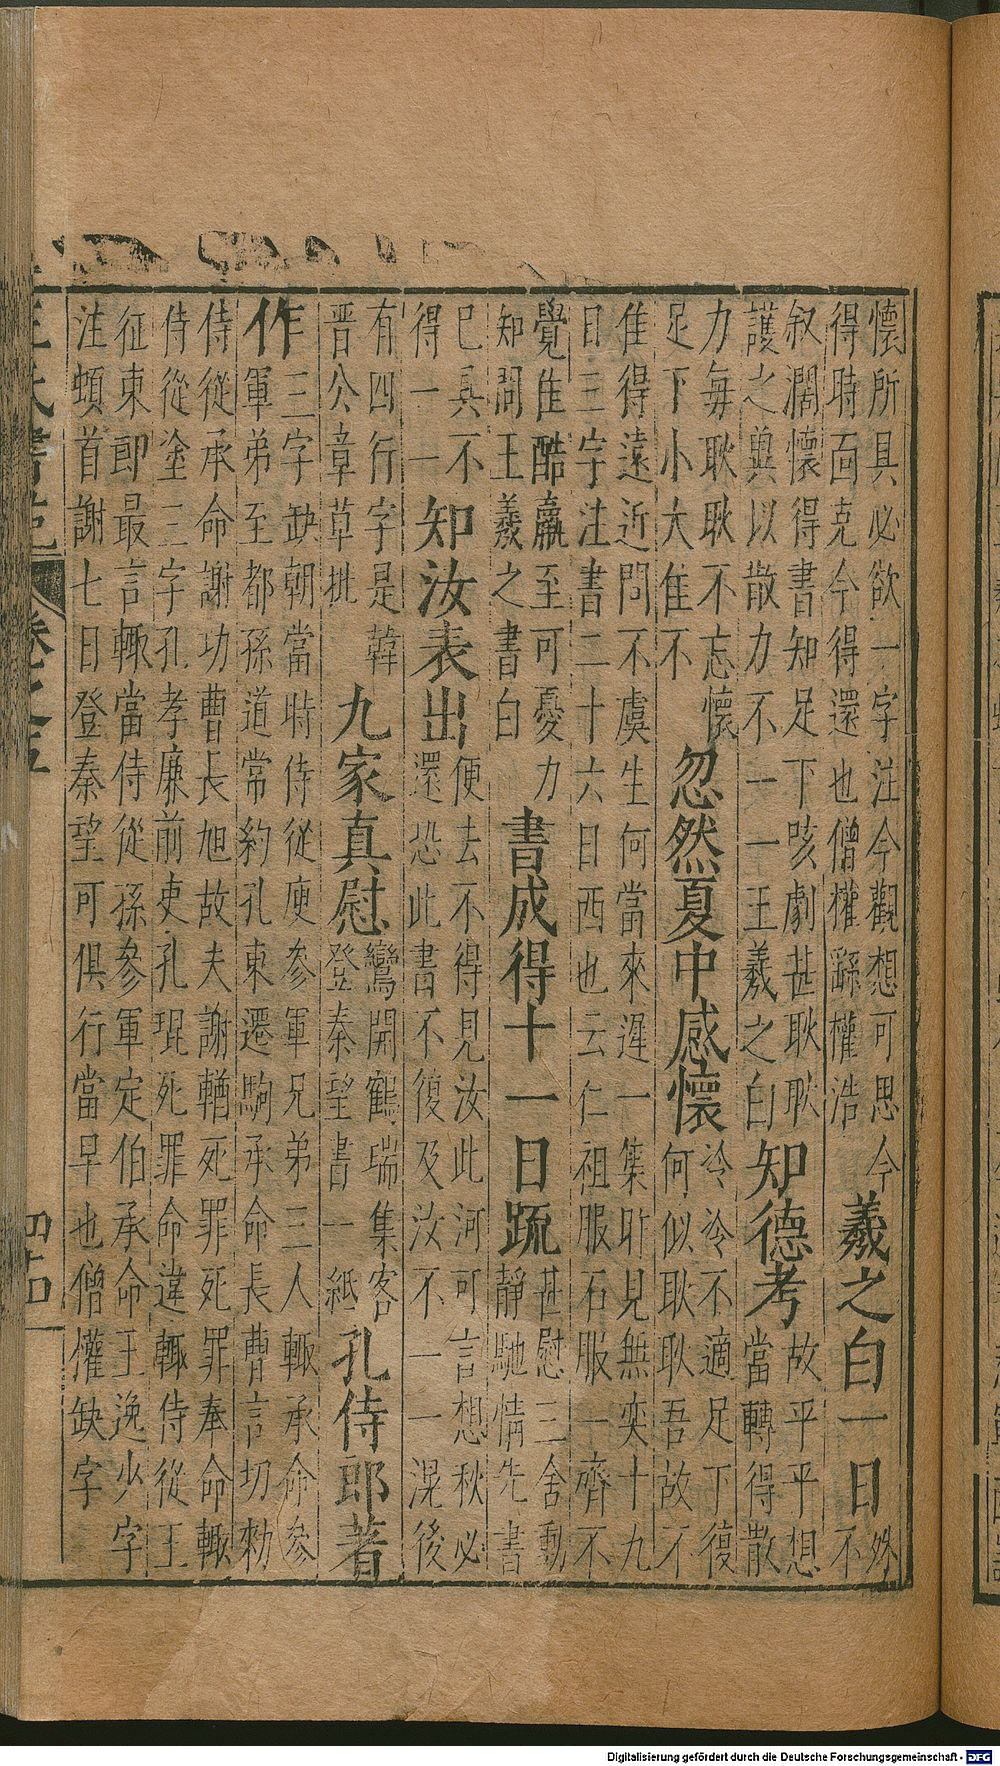 懷所具必欲一字注今觀想可思今
得時面克今得還也僧權繇權浩
羲之白一日
殊
不
叙闊懷得書知足下咳劇甚耿耿
護之與以散力不一一王羲之白
知德考
故平平想
當轉得散
力毎耿耿不忘懷
足下小大佳不
忽然夏中感懷
冷冷不適足下復
何似耿耿吾故不
佳得遠近問不虞生何當來遲一集旷見無奕十九
日三字注書二十六日西也云仁祖服石服一齊不
覺佳酷羸至可憂力
知問王羲之書白
書成得十一日䟽
甚慰三舍動
靜馳情先書
巳具不
得一一
知汝表出
便去不得見汝此河可言想秋必
還恐此書不復及汝不一一濕後
有四行字是韓
晋公章草批
九家真慰
鸞開鶴瑞集客
登秦望書一紙
孔侍郎著
作
三字缺朝當時侍從庾參軍兄弟三人輙承命參
軍弟至都孫道常約孔東遷駒承命長曹言切勑
侍從承命謝功曹長旭故夫謝輶死罪死罪奉命輙
侍從塗三字孔孝廉前吏孔琨死罪命違輙侍從王
征東即最言輙當侍從孫參軍定伯承命王逸少字
注頓首謝七日登秦望可俱行當早也僧權缺字
王氏書苑 卷之五
Digitalisierung gefördert durch die Deutsche Forschungsgemeinschaft - DFG